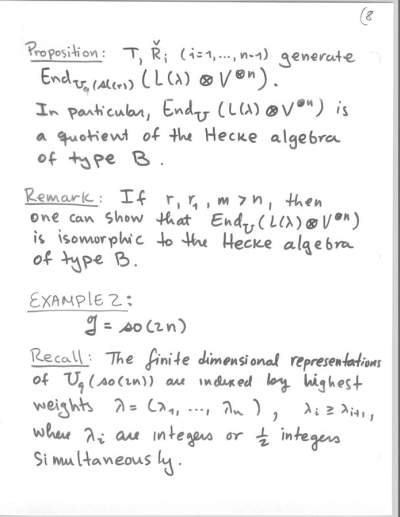 (8
Proposition: T, Ři (i=1,...,n-1) generate
End_{U_q(sl(r))} (L(λ) ⊗ V^{⊗n}).
In particular, End_U (L(λ) ⊗ V^{⊗n}) is
a quotient of the Hecke algebra
of type B.
Remark: If r, r₁, m > n, then
one can show that End_U (L(λ) ⊗ V^{⊗n})
is isomorphic to the Hecke algebra
of type B.
EXAMPLE 2:
g = so(2n)
Recall: The finite dimensional representations
of U_q(so(2n)) are indexed by highest
weights λ = (λ₁, ..., λₙ), λᵢ ≥ λᵢ₊₁,
where λᵢ are integers or ½ integers
simultaneously.